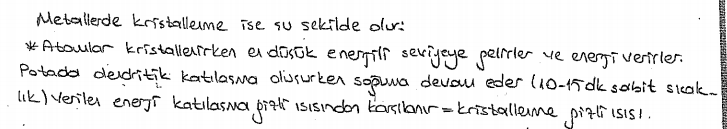 Metallerde kristallenme ise şu şekilde olur:
* Atomlar kristallenirken en düşük enerjili seviyeye gelirler ve enerji verirler.
Potada dendritik katılaşma oluşurken soğuma devam eder (10-15 dk sabit sıcak-
lık) Verilen enerji katılaşma gizli ısısından karşılanır = kristallenme gizli ısısı.